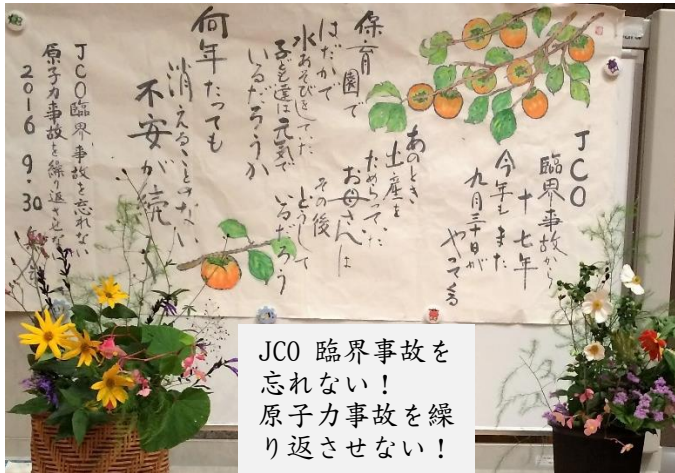 JCO
臨界事故から
十七年
今年もまた
九月三十日が
やってくる
あのとき
出産を
ためらっていた
お母さんは
その後
どうして
いるだろう
保育園で
はだかで
水あそびをしていた
子ども達は元気で
いるだろうか
何年たっても
消えることのない
不安が続く
JCO臨界事故を忘れない
原子力事故を繰り返させない
2016 9・30
JCO 臨界事故を
忘れない！
原子力事故を繰
り返させない！